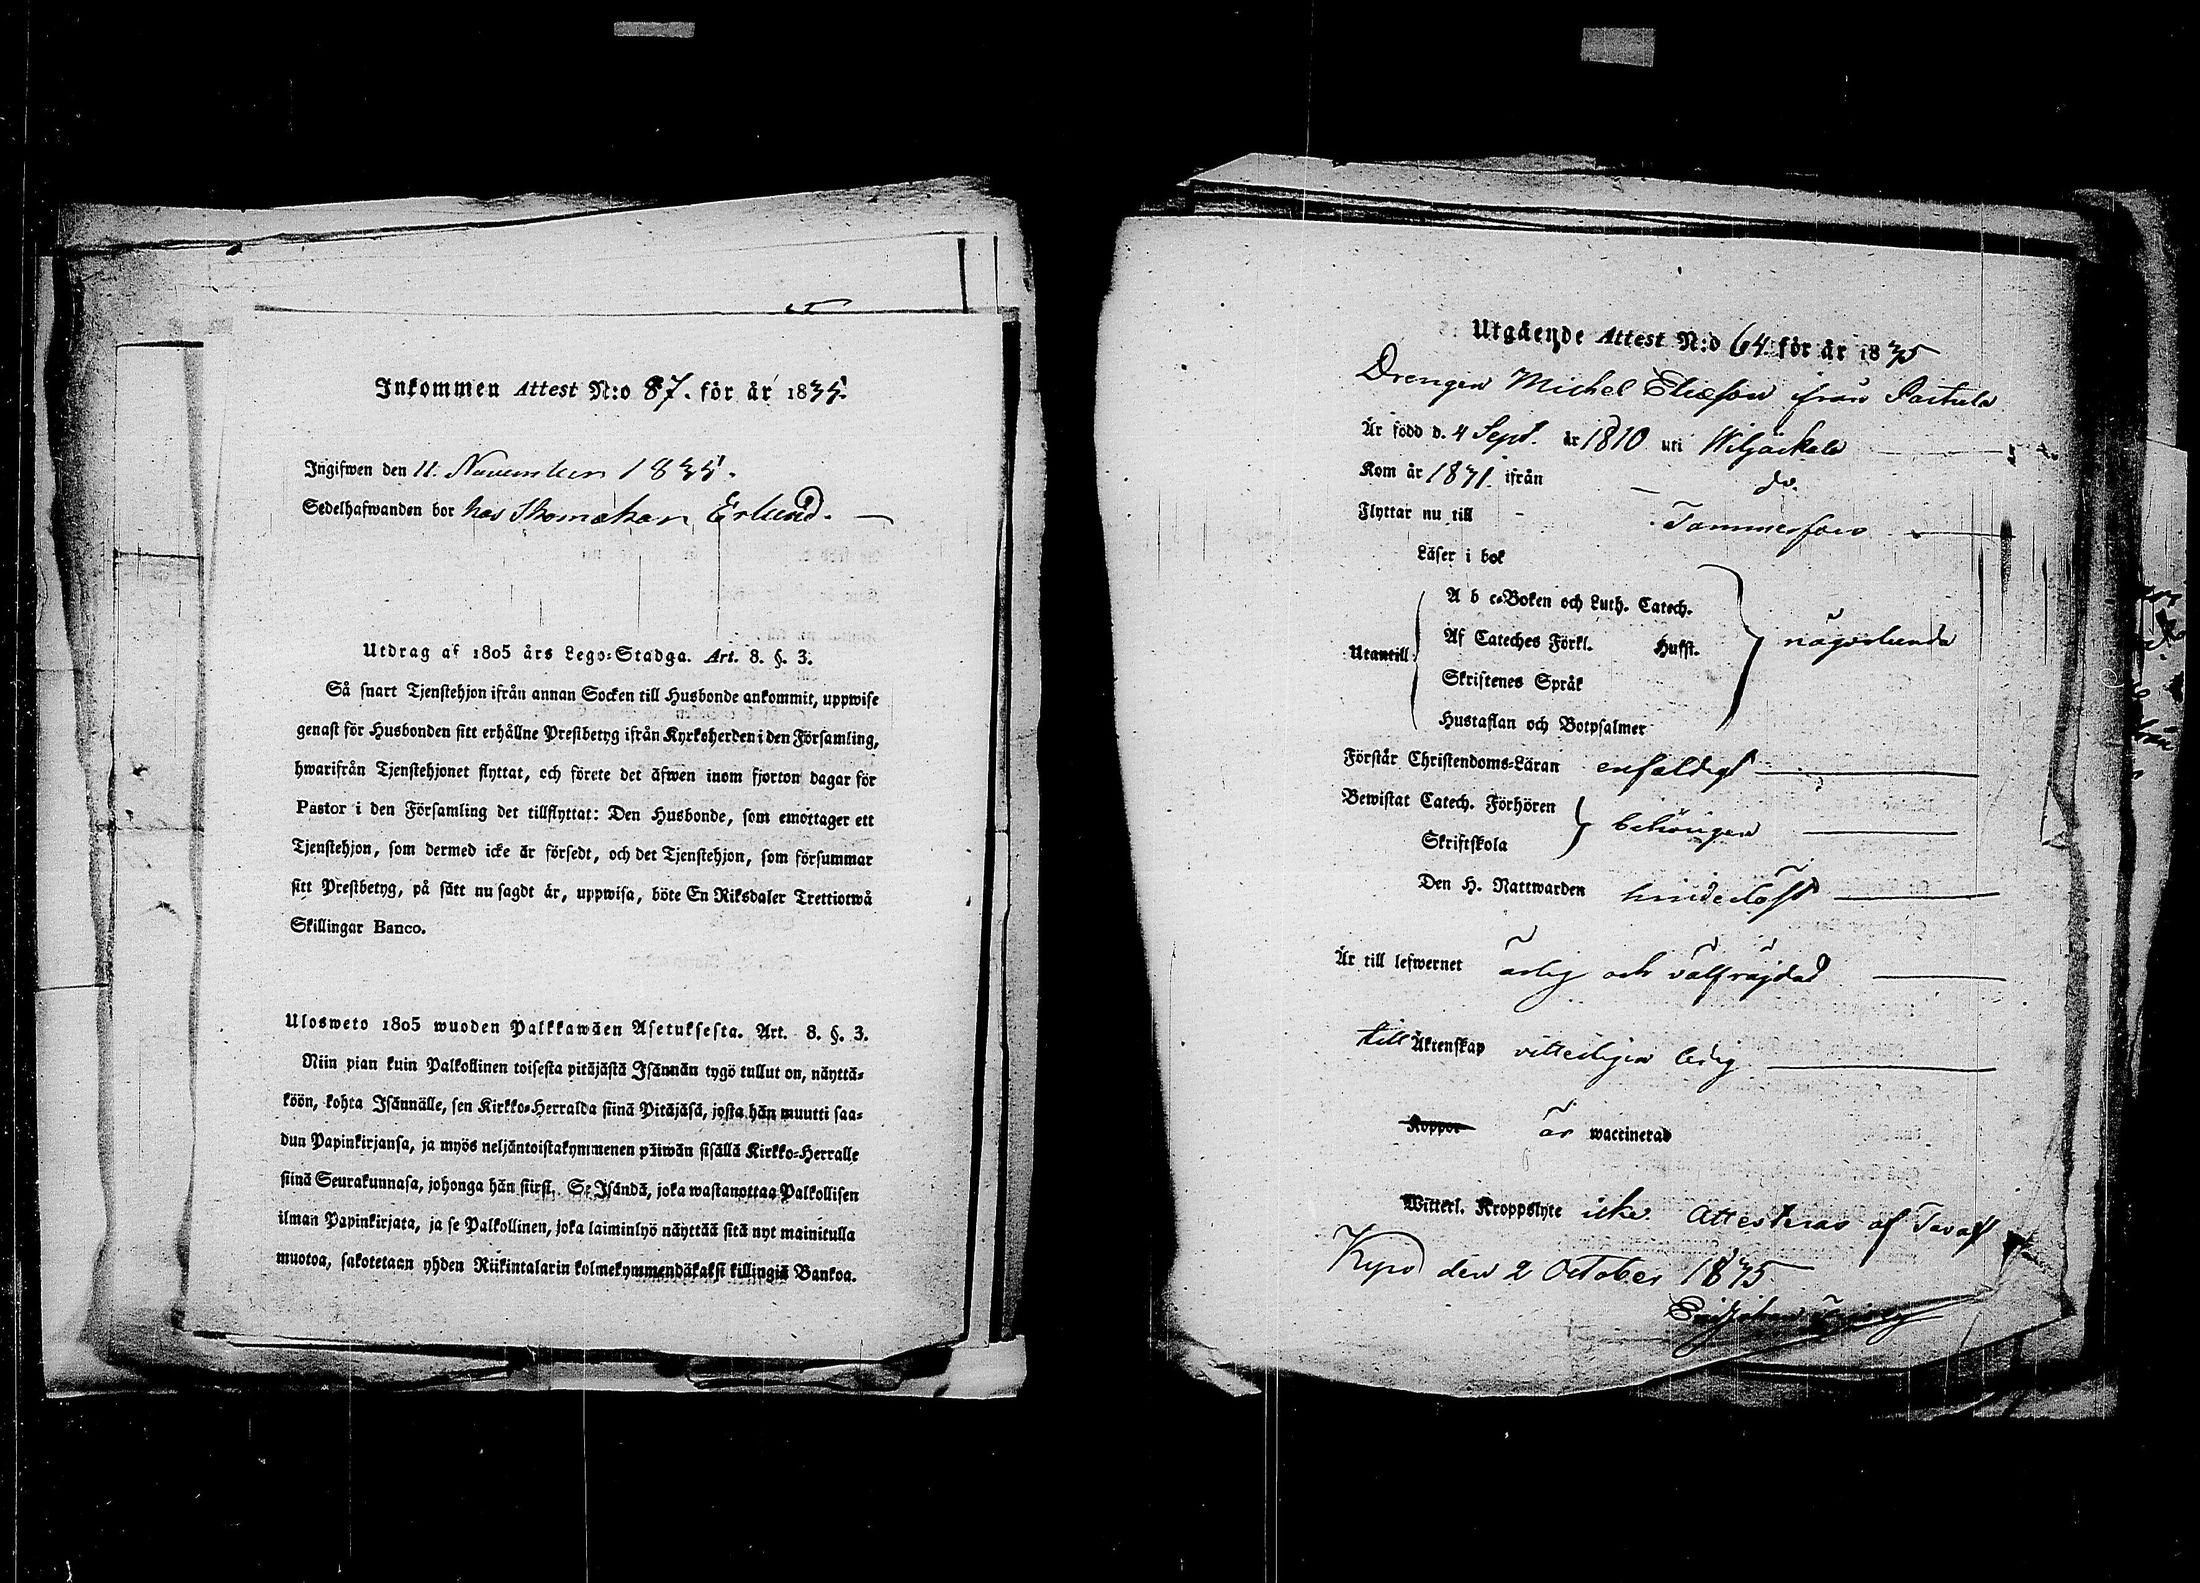 Inkommen Attest N:o 87. för år 1835.
Ingifwen den 11. November 1835.
Sedelhafwanden bor hos Skomakar Erlund.
Utdrag af 1805 års Lego-Stadga. Art. 8. §. 3.
Så snart Tjenstehjon ifrån annan Socken till Husbonde ankommit, uppwise
genast för Husbonden sitt erhållne Prestbetyg ifrån Kyrkoherden i den Församling,
hwarifrån Tjenstehjonet flyttat, och förete det äfwen inom fjorton dagar för
Pastor i den Församling det tillflyttat: Den Husbonde, som emottager ett
Tjenstehjon, som dermed icke är försedt, och det Tjenstehjon, som försummar
sitt Prestbetyg, på sätt nu sagdt är, uppwisa, böte En Riksdaler Trettiotwå
Skillingar Banco.
Ulosweto 1805 wuoden Palkkawäen Asetuksesta. Art. 8. §. 3.
Niin pian kuin Palkollinen toisesta pitäjästä Isännän tygö tullut on, näyttä-
köön, kohta Isännälle, sen Kirkko-Herralda siinä Pitäjäsä, josta hän muutti saa-
dun Papinkirjansa, ja myös neljäntoistakymmenen päiwän sisällä Kirkko-Herralle
siinä Seurakunnasa, johonga hän siirsi. Se Isändä, joka wastanottaa Palkollisen
ilman Papinkirjata, ja se Palkollinen, joka laiminlyö näyttää sitä nyt mainitulla
muotoa, sakotetaan yhden Riikintalarin kolmekymmendäkaksi killingiä Bankoa.
Utgående Attest N:o 64. för år 1835
Drengen Michel Eliæson från
Är född d. 4 Sept. år 1810 uti Wiljäkkala
Kom år 1831. ifrån do.
Flyttar nu till Tammerfors
Läser i bok
A b c-Boken och Luth. Catech.
Utantill Af Cateches Förkl. Hufst. någorlunda
Skriftenes Språk
Hustaflan och Botpsalmer
Förstår Christendoms-Läran enfaldigt
Bewistat Catech. Förhören behörigen
Skriftskola
Den H. Nattwarden hinderlöst
Är till lefwernet ärlig och välfräjdad
till Äktenskap vitterligen ledig
Koppor är waccinerad
Witterl. Kroppslyte icke. Attesteras af Tavast
Kyro den 2 October 1835